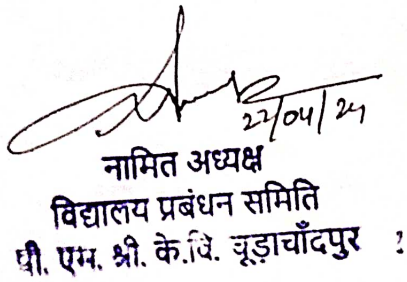 22/04/24
नामित अध्यक्ष
विद्यालय प्रबंधन समिति
पी. एम. श्री. के.वि. चूड़ाचाँदपुर